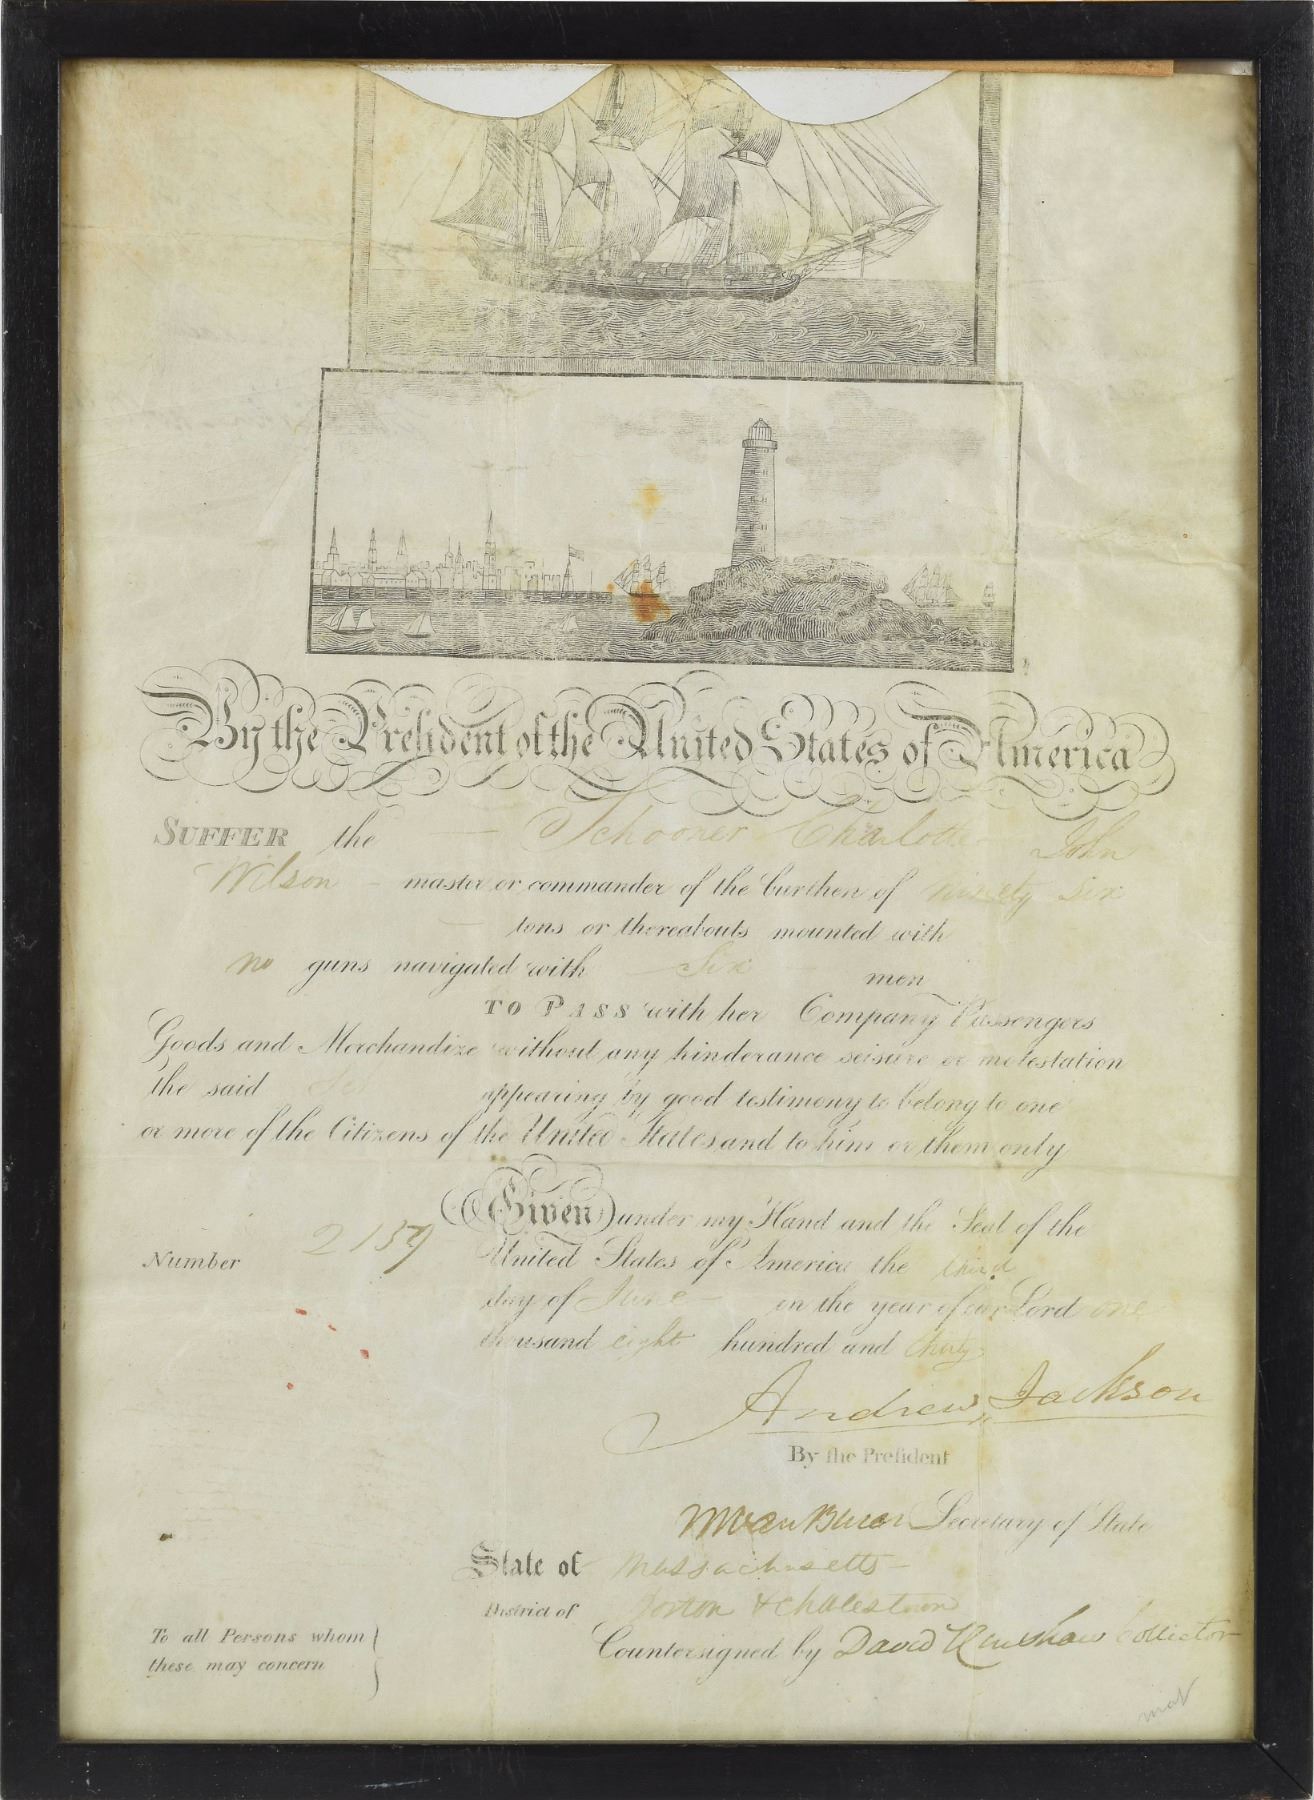 By the President of the United States of America
SUFFER the — Schooner Charlotte John
Wilson — master or commander of the burthen of Ninety Six
— tons or thereabouts mounted with
no guns navigated with — Six — men
TO PASS with her Company Passengers
Goods and Merchandize without any hinderance seisure or molestation
the said appearing by good testimony to belong to one
or more of the Citizens of the United States and to him or them only
Given under my Hand and the Seal of the
Number 2159 United States of America the third
day of June — in the year of our Lord one
thousand eight hundred and thirty
Andrew Jackson
By the President
M Van Buren Secretary of State
State of Massachusetts —
District of & 
Countersigned by David Henshaw Collector
To all Persons whom
these may concern